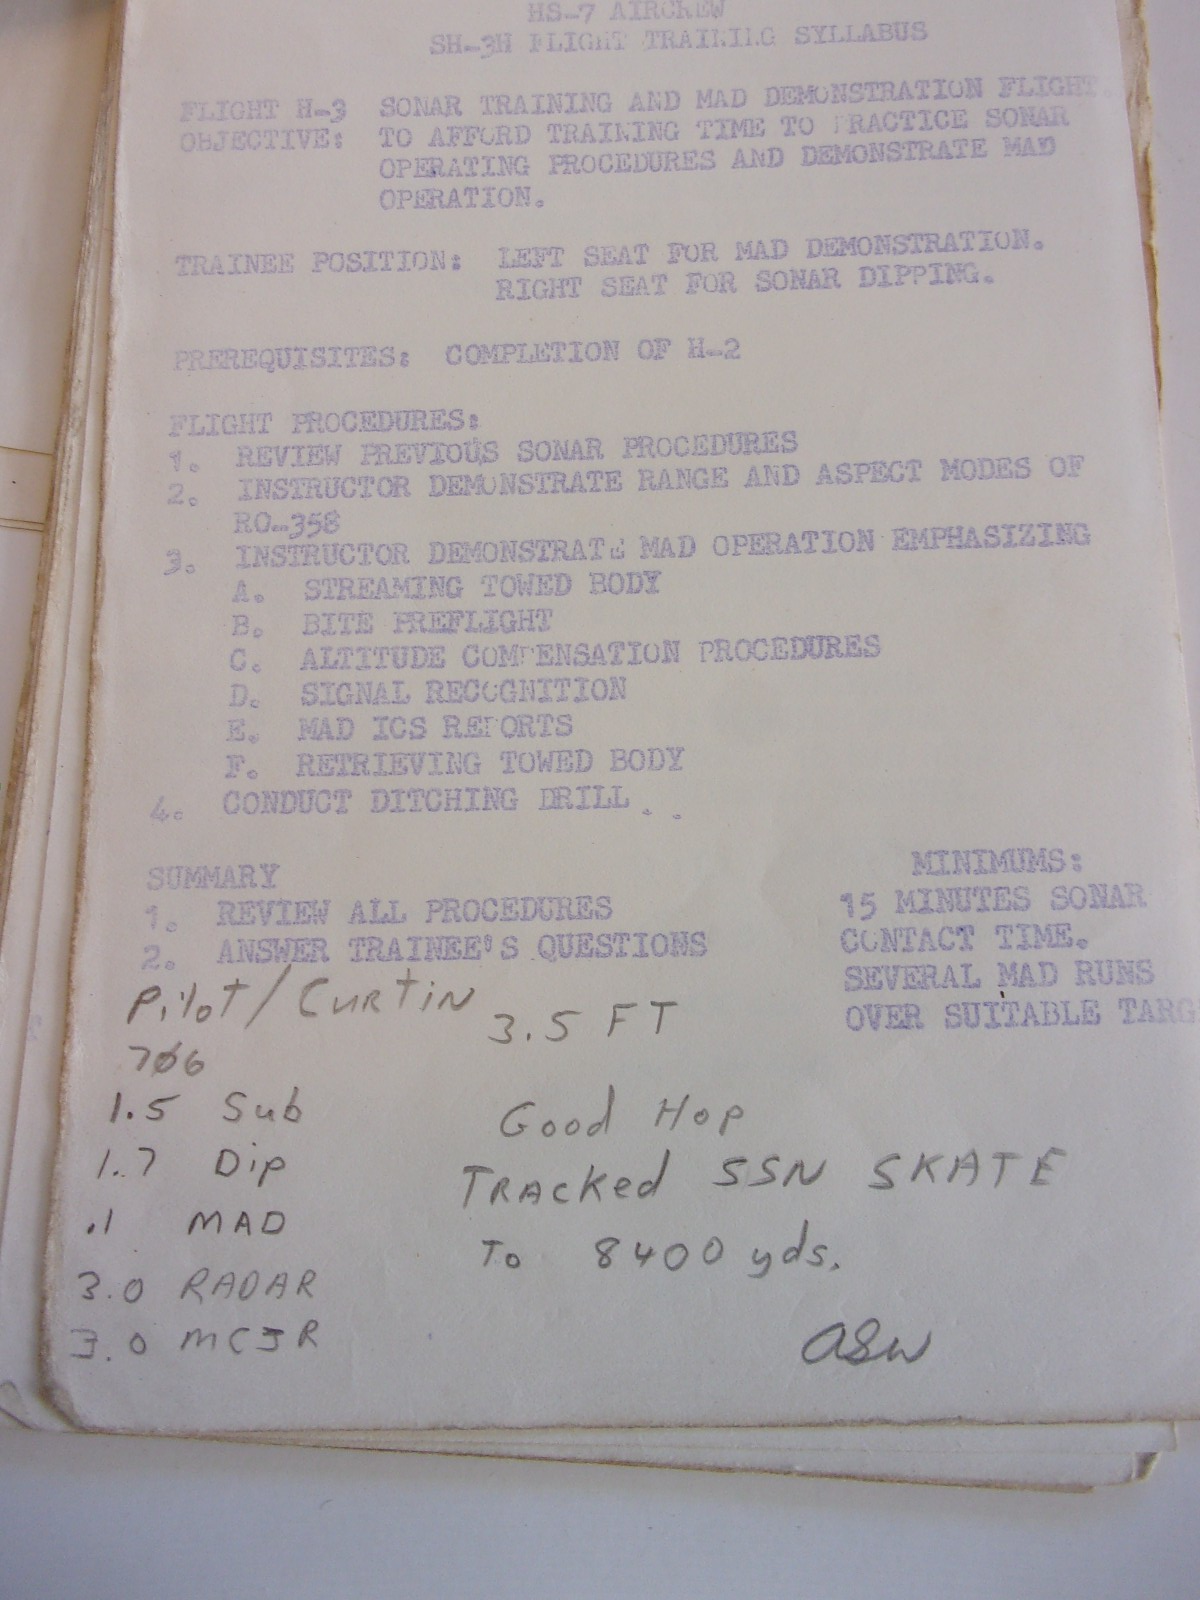 HS-7 AIRCREW
SH-3H FLIGHT TRAINING SYLLABUS
FLIGHT H-3 SONAR TRAINING AND MAD DEMONSTRATION FLIGHT.
OBJECTIVE: TO AFFORD TRAINING TIME TO PRACTICE SONAR
OPERATING PROCEDURES AND DEMONSTRATE MAD
OPERATION.
TRAINEE POSITION: LEFT SEAT FOR MAD DEMONSTRATION.
RIGHT SEAT FOR SONAR DIPPING.
PREREQUISITES: COMPLETION OF H-2
FLIGHT PROCEDURES:
1. REVIEW PREVIOUS SONAR PROCEDURES
2. INSTRUCTOR DEMONSTRATE RANGE AND ASPECT MODES OF
RO-358
3. INSTRUCTOR DEMONSTRATE MAD OPERATION EMPHASIZING
A. STREAMING TOWED BODY
B. BITE PREFLIGHT
C. ALTITUDE COMPENSATION PROCEDURES
D. SIGNAL RECOGNITION
E. MAD ICS REPORTS
F. RETRIEVING TOWED BODY
4. CONDUCT DITCHING DRILL . .
SUMMARY
1. REVIEW ALL PROCEDURES
2. ANSWER TRAINEE'S QUESTIONS
MINIMUMS:
15 MINUTES SONAR
CONTACT TIME.
SEVERAL MAD RUNS
OVER SUITABLE TARG
Pilot/Curtin 3.5 FT
706
1.5 Sub
1.7 Dip
.1 MAD
3.0 RADAR
3.0 MCJR
Good Hop
TRACKed SSN SKATE
To 8400 yds.
ASW